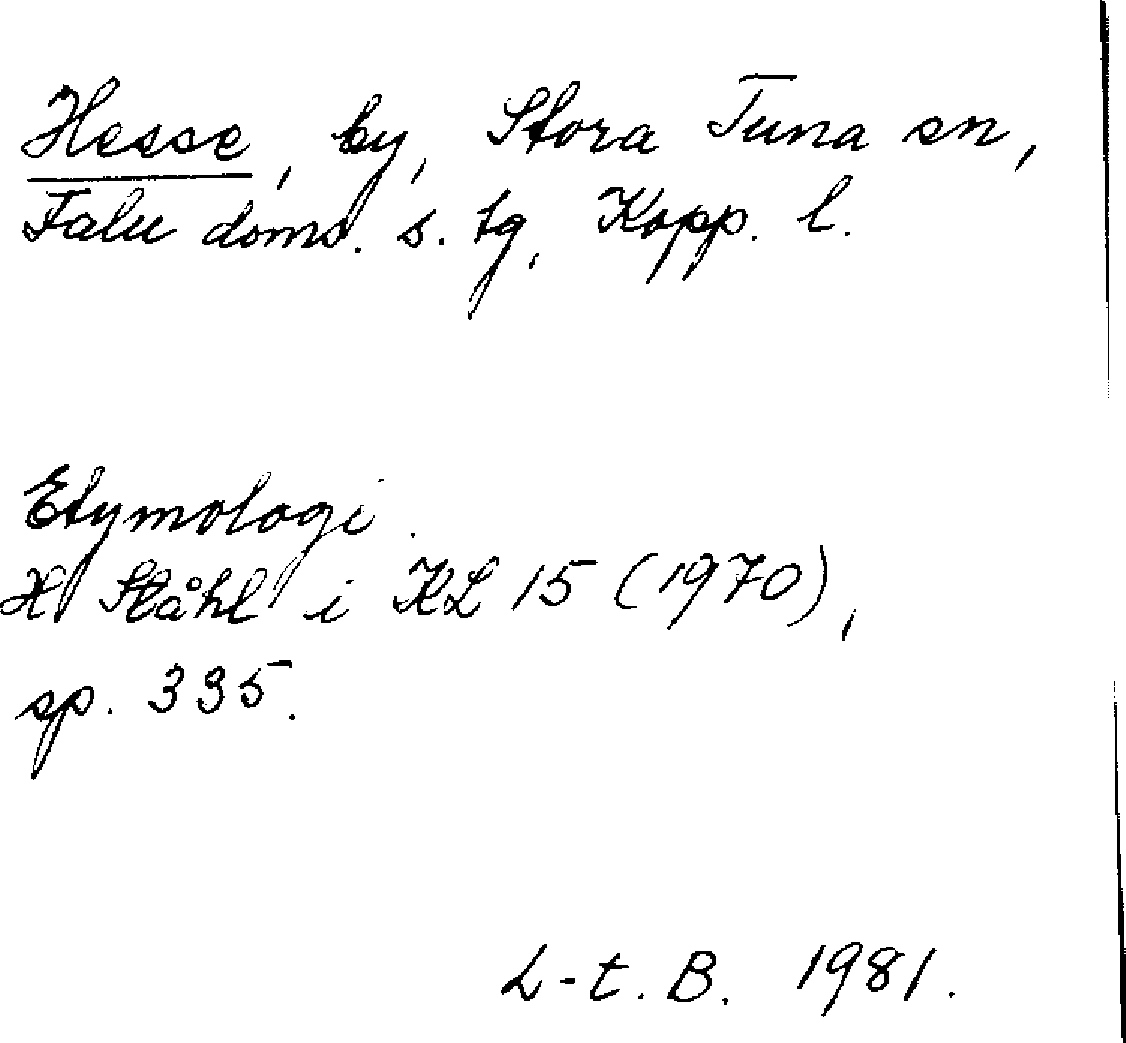 Hesse, by, Stora Tuna sn,
Falu doms. s. tg, Kopp. l.
Etymologi.
H Ståhl i KL 15 (1970),
sp. 335.
L-t. B. 1981.